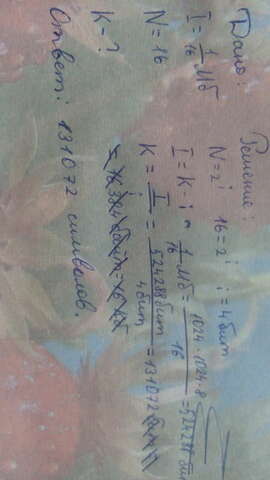 Дано:
I = 1/16 Мб
N = 16
K - ?
Решение:
N = 2^i 16 = 2^i i = 4 бит
I = K · i 1/16 Мб = 1024·1024·8/16 = 524288 бит
K = I/i = 524288 бит/4 бит = 131072
Ответ: 131072 символов.